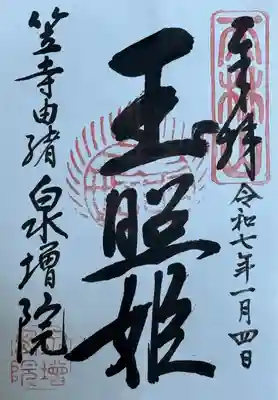 奉拝
令和七年一月四日
玉照姫
笠寺由緒
泉増院
天林山